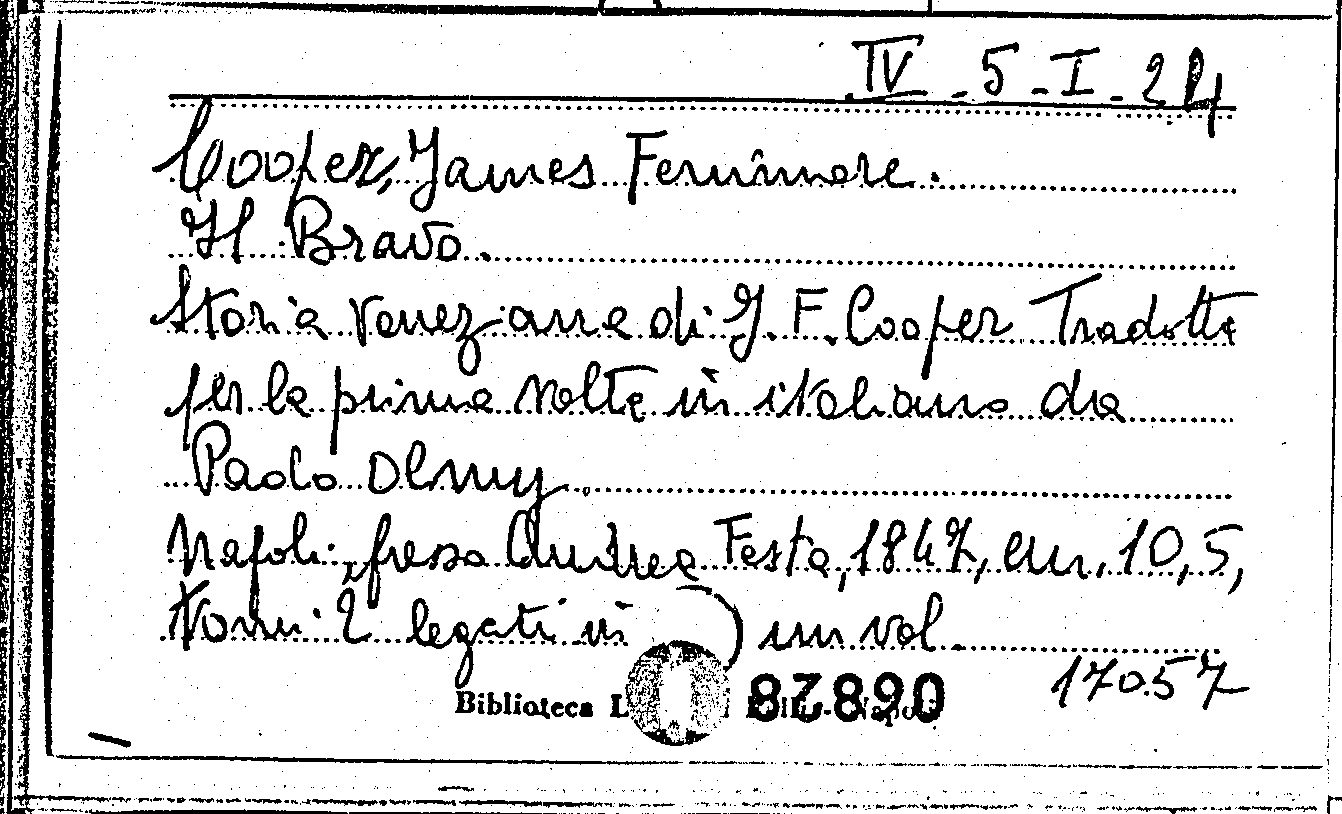 IV - 5 - I - 24
Cooper, James Fennimore.
Il Bravo.
Storia veneziana di J. F. Cooper Tradotta
per la prima volta in italiano da
Paolo Olmy.
Napoli, presso Andrea Festa, 1847, cm. 10,5,
tomi 2 legati in un vol.
17057
Biblioteca 87890